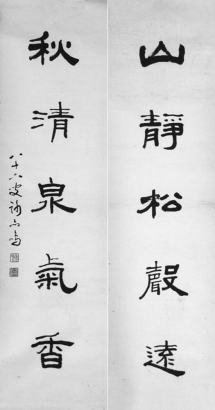 山靜松聲遠
秋清泉氣香
八十六叟